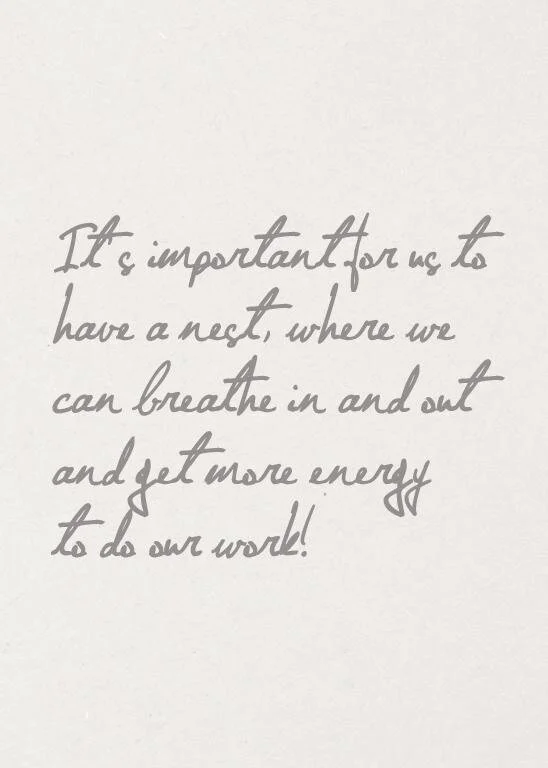 It's important for us to
have a nest, where we
can breathe in and out
and get more energy
to do our work!